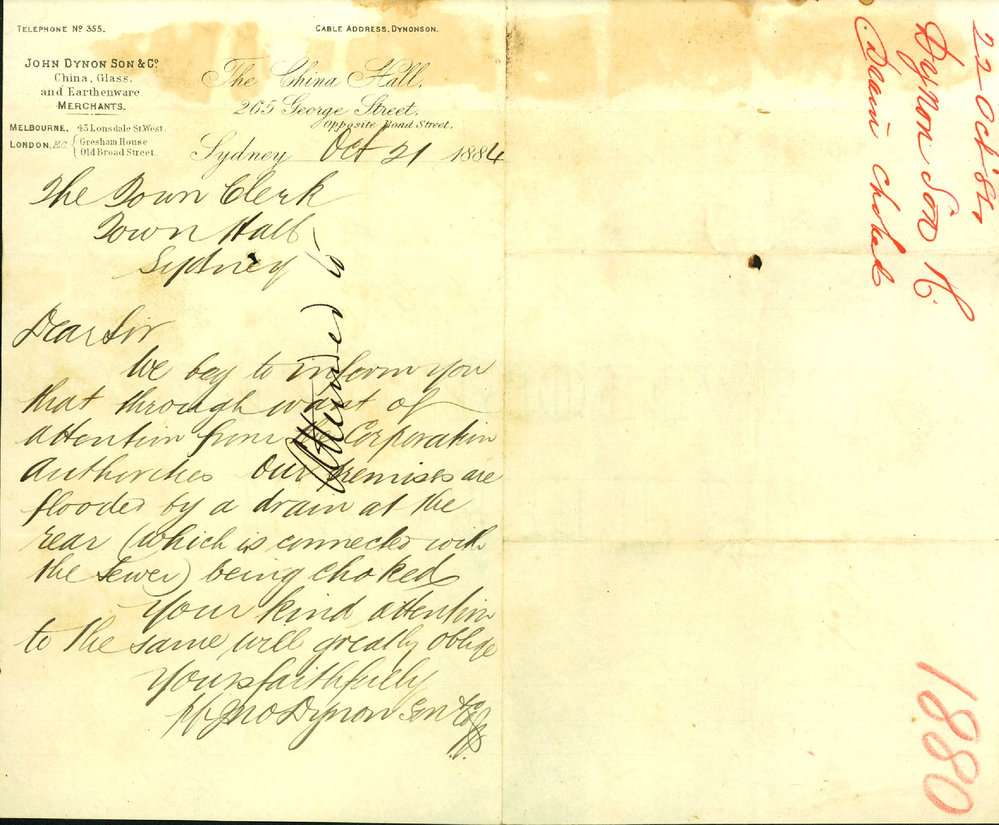 TELEPHONE Nº 355.
CABLE ADDRESS, DYNONSON.
JOHN DYNON SON & Cº
China, Glass,
and Earthenware
MERCHANTS.
MELBOURNE. 43 Lonsdale St West.
LONDON, E.C. { Gresham House
Old Broad Street.
The China Hall,
265 George Street,
Opposite Bond Street.
Sydney Oct 21 1884
The Town Clerk
Town Hall
Sydney
Dear Sir
We beg to inform you
that through want of
attention from the Corporation
Authorities our premises are
flooded by a drain at the
rear (which is connected with
the sewer) being choked
Your kind attention
to the same will greatly oblige
Yours faithfully
Jno Dynon Son & Co
Attended to
22 Oct 84
Dynon Son
Drain choked
1880